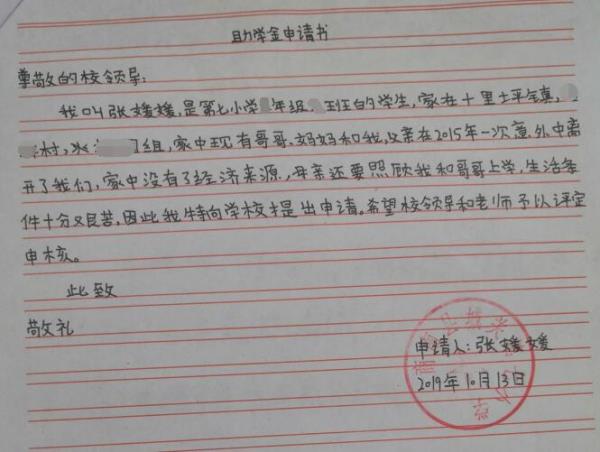 助学金申请书
尊敬的校领导:
我叫张媛媛,是第七小学年级班的学生,家在十里坪镇,
村,组,家中现有哥哥、妈妈和我,父亲在2015年一次意外中离
开了我们,家中没有了经济来源,母亲还要照顾我和哥哥上学,生活条
件十分艰苦,因此我特向学校提出申请。希望校领导和老师予以评定
审核。
此致
敬礼
申请人:张媛媛
2019年10月13日